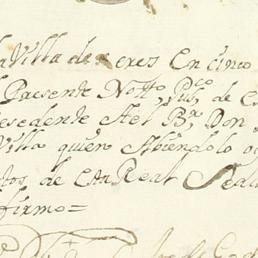 a Villa de xeres En cinco
l Presente Notto, Puco, de es
resedente Ael Br. Don
Villa quien Abiendolo o
tos de Can Real Sedu
firmo =